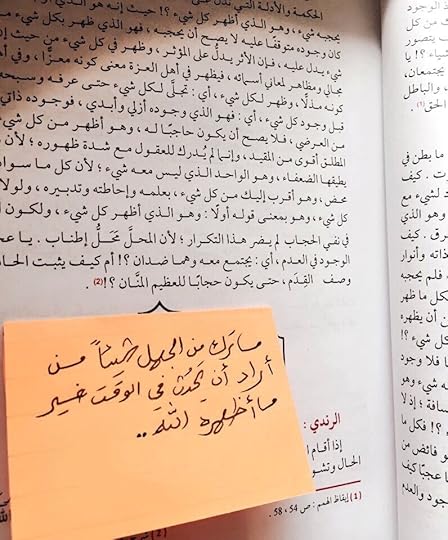 الحكمة والأدلة التي تدل على
يحجبه شيء، وهو الذي أظهر كل شيء ؟! حيث إنه هو الذي
كان وجوده متوقفًا عليه لا يصح أن يحجبه، فهو الذي ظهر بكل شيء
شيء يدل عليه، فإن الأثر يدلُّ على المؤثر، وظهر في كل شيء من حيث إن
مجالي ومظاهر لمعاني أسمائه، فيظهر في أهل العزة معنى كونه معزًّا، وفي أهل
كونه مذلًّا، وظهر لكل شيء، أي: تجلَّى لكل شيء حتى عرفه وسبحه
قبل وجود كل شيء، أي: فهو الذي وجوده أزلي وأبدي، فوجوده ذاتي
من العرضي، فلا يصح أن يكون حاجبًا له، وهو أظهر من كل شيء
المطلق أقوى من المقيد، وإنما لم يُدرك للعقول مع شدة ظهوره؛ لأن
يطيقها الضعفاء، وهو الواحد الذي ليس معه شيء؛ لأن كل ما سواه
محض، وهو أقرب إليك من كل شيء، بعلمه وإحاطته وتدبيره، ولولا
كل شيء، وهو بمعنى قوله أولًا: وهو الذي أظهر كل شيء، ولكون
في نفي الحجاب لم يضر هذا التكرار؛ لأن المحلَّ محَلُّ إطناب. يا عجبًا
الوجود في العدم، أي: يجتمع معه وهما ضدان ؟! أم كيف يثبت الحا
وصف القِدَم، حتى يكون حجابًا للعظيم المنَّان ؟!(2).
ما ترك من الجهل شيئاً من
أراد أن يُحْدِث في الوقت غير
ما أظهره الله ..
الرندي :
إذا أقام
الحال وتشو
(1) إيقاظ الهمم : ص 54 ، 58 .
(2)
الوجود
يتصور
يجتمعان،
والباطل
الحق(1).
ما بطن في
كيف
لشيء مع
وهو الذي
كيف
ذاته وأنوار
فلم يحجبه
كل ما ظهر
أن يظهره
كل شيء ؟!
فلا وجود
شيء وهو
؛ إذ لا
؟! فكل ما
فائض من
عجبًا كيف
والعدم